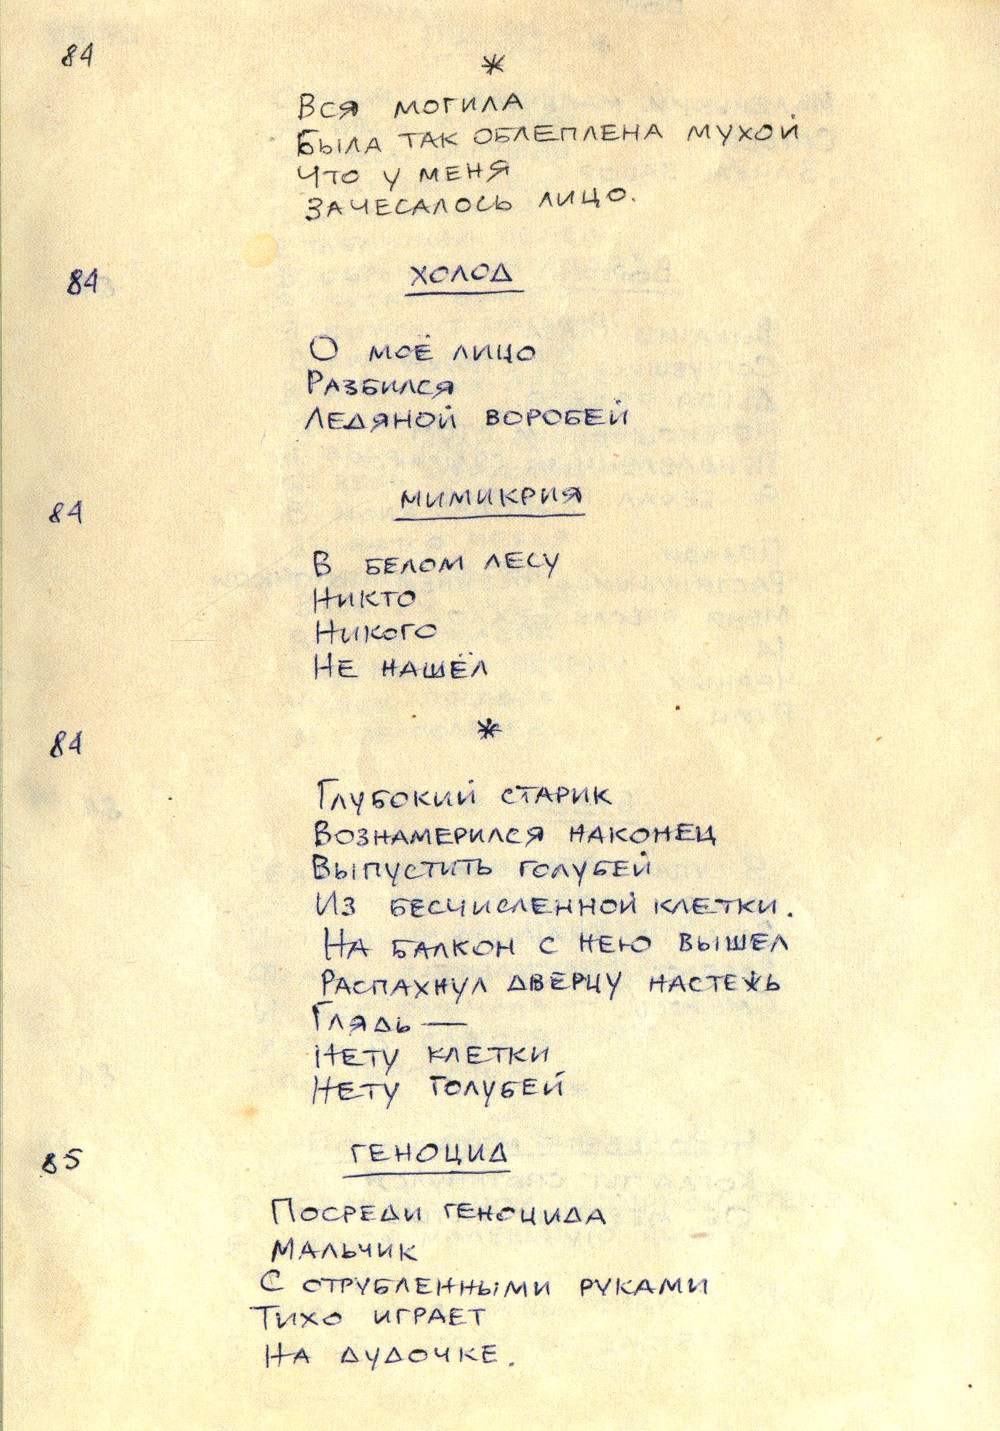 84
*
Вся могила
Была так облеплена мухой
Что у меня
Зачесалось лицо.
84
ХОЛОД
О моё лицо
Разбился
Ледяной воробей
84
МИМИКРИЯ
В белом лесу
Никто
Никого
Не нашёл
84
*
Глубокий старик
Вознамерился наконец
Выпустить голубей
Из бесчисленной клетки.
На балкон с нею вышел
Распахнул дверцу настежь
Глядь —
Нету клетки
Нету голубей
85
ГЕНОЦИД
Посреди геноцида
Мальчик
С отрубленными руками
Тихо играет
На дудочке.